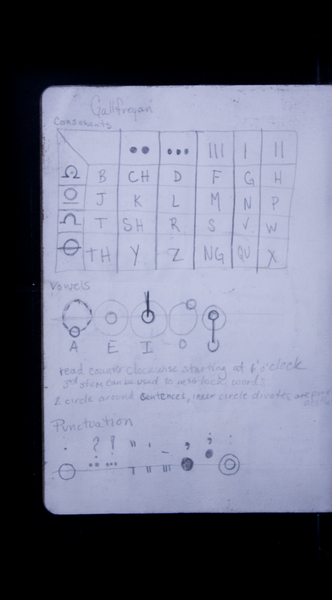 Gallifreyan
Consonants
B CH D F G H
J K L M N P
T SH R S V W
TH Y Z NG QU X
Vowels
A E I O U
read counter clockwise starting at 6 o'clock
can be used to words
2 circle around sentences, inner circle
Punctuation
. ? ! " ' - , ; :